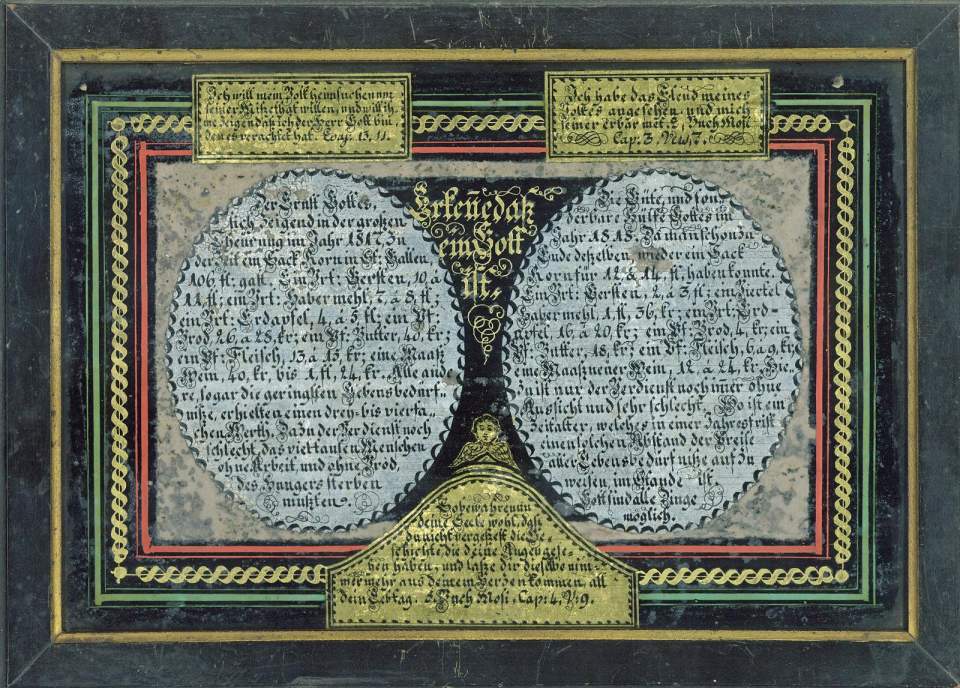 Ich will mein Volk heimsuchen um
seiner Mißethat willen, und will ih
ne Zeigen daß ich der Herr Gott bin
den es verachtet hat. Esaj. 13, 11.
Ich habe das Elend meines
Volkes angesehen, und mich
seiner erbarmet. 2, Buch Mosi
Cap: 3, V. 7.
Erkeñe daß
ein Gott
ist,
Der Ernst Gottes,
sich zeigend in der großen
Theurung im Jahr 1817. Zu
der Zeit ein Sack Korn in St: Gallen
106 fl: galt. Ein Vrt: Gersten, 10, a
11 fl; ein Vrt: Haber mehl, 7, a 8, fl;
ein Vrt: Erdäpfel, 4, a 5 fl; ein Pf:
Brod, 26, a 28, kr; ein Pf: Butter, 40, kr;
ein Pf: Fleisch, 13, a 15, kr; eine Maaß
Wein, 40, kr, bis 1, fl, 24, kr, Alle ande
re, sogar die geringsten Lebensbedürf
niße, erhielten einen drey- bis vierfa,,
chen Werth. Dazu der Verdienst noch
schlecht, das viel tausen Menschen
ohne Arbeit, und ohne Brod,
des Hungers sterben
mußten.
Die Güte, und son
derbare Hülfe Gottes im
Jahr 1818. Da man schon zu
Ende deßelben, wieder ein Sack
Korn für 12 & 14 fl; haben konnte.
Ein Vrt: Gersten, 2, a 3, fl; ein Viertel
Haber mehl, 1 fl, 36, kr; ein Vrt: Erd-
äpfel, 16, a 20, kr; ein Pf: Brod, 4, kr; ein
Pf: Butter, 18, kr; ein Pf: Fleisch, 6, a 9, kr;
eine Maaß neuer Wein, 12, a 24, kr, Hie
zu ist nur der Verdienst noch im̃er ohne
Aussicht und sehr schlecht. Wo ist ein
Zeitalter, welches in einer Jahresfrist
einen solchen Abstand der Preise
aller Lebensbedürfniße auf zu
weisen, im Stande ist.
Gott sind alle Dinge
möglich.
So bewahre nun
deine Seele wohl, daß
du nicht vergeßest die Ge-
schichte, die deine Augen gese-
hen haben, und laße dir dieselbe nim-
mermehr aus deinem Herzen kommen, all
dein Lebtag. 5. Buch Mosi, Cap: 4, V: 9.